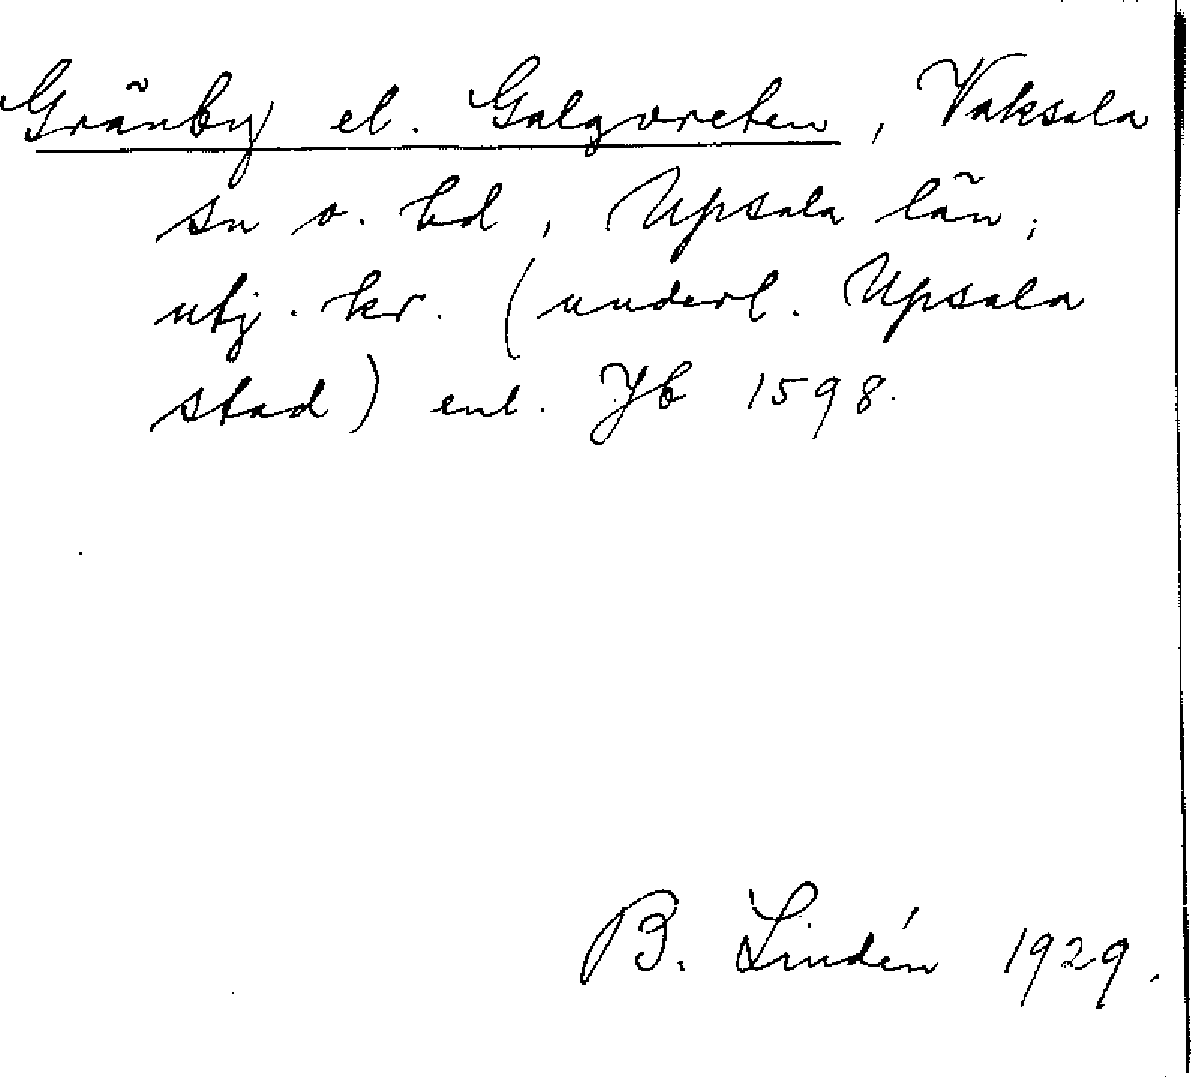 Gränby el. Galgvreten, Vaksala
sn o. hd, Upsala län;
utj. kr. (underl. Upsala
stad) enl. Jb 1598.
B. Lindén 1929.